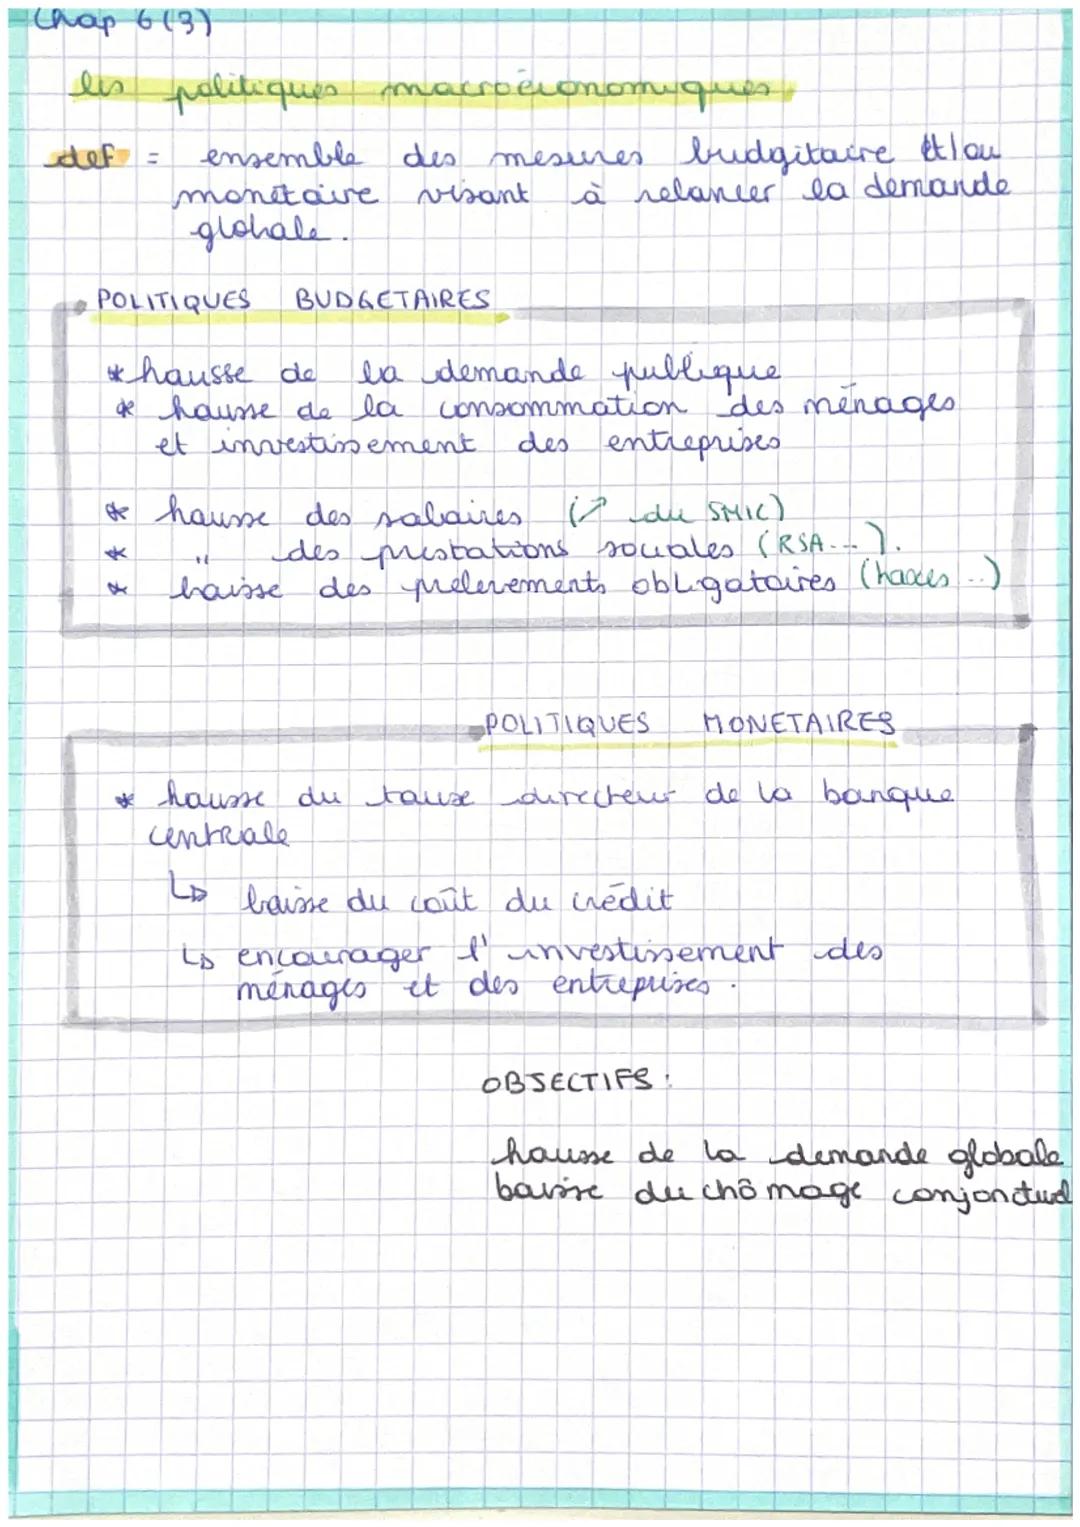 Chap 6(3)
les politiques macroéconomiques
def = ensemble des mesures budgitaire et/ou
monétaire visant à relancer la demande
globale.
POLITIQUES BUDGETAIRES
* hausse de la demande publique
* hausse de la consommation des ménages
et investissement des entreprises
* hausse des salaires (↗ du SMIC)
* " des prestations sociales (RSA...).
* baisse des prelevements obligatoires (taxes ..)
POLITIQUES MONETAIRES
* hausse du taux directeur de la banque
centrale
↳ baisse du coût du crédit
↳ encourager l'investissement des
ménages et des entreprises.
OBJECTIFS :
hausse de la demande globale
baisse du chômage conjoncturel